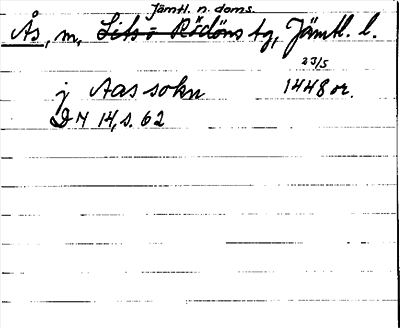 Jämtl. n. doms.
Ås, m, Lits o Rödöns tg, Jämtl. l.
23/5
j Aas sokn 1448 or.
DN 14, s. 62